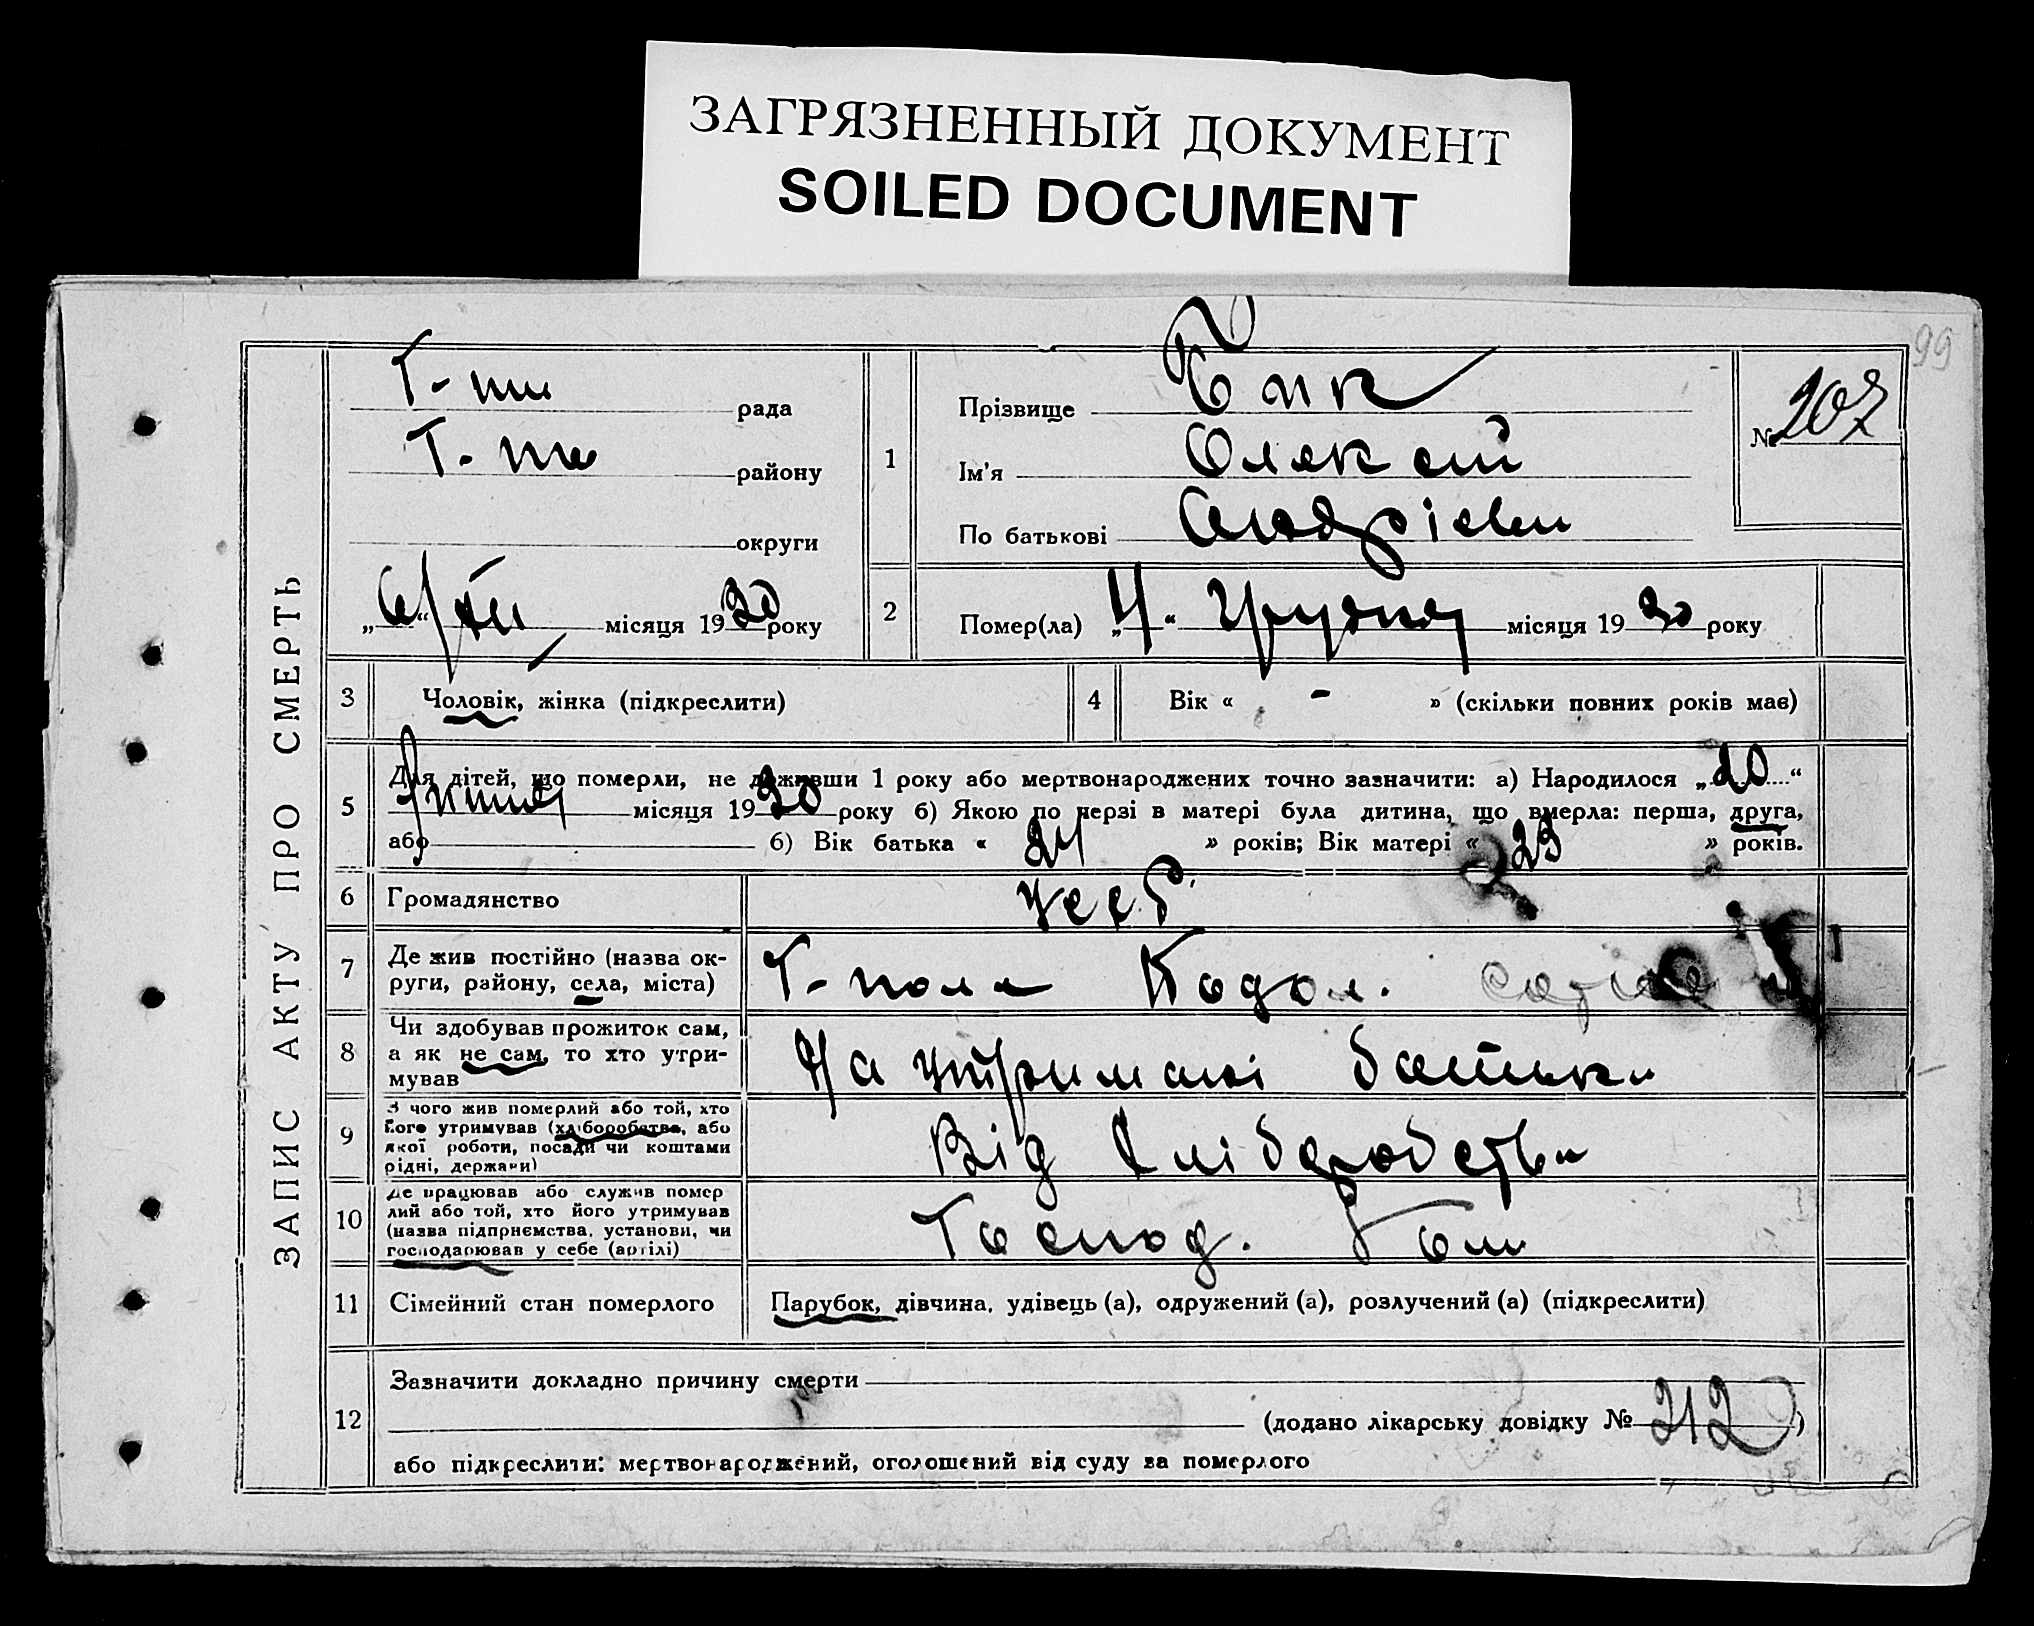 ЗАГРЯЗНЕННЫЙ ДОКУМЕНТ
SOILED DOCUMENT
99
ЗАПИС АКТУ ПРО СМЕРТЬ
рада
району
округи
„ “ місяця 1930 року
1
Прізвище Бик
Ім'я Олексій
По батькові Андрієви
№ 207
2
Помер(ла) „4“ Грудня місяця 1930 року
3
Чоловік, жінка (підкреслити)
4
Вік « - » (скільки повних років має)
5
Для дітей, що померли, не доживши 1 року або мертвонароджених точно зазначити: а) Народилося „20“
Липня місяця 1930 року б) Якою по черзі в матері була дитина, що вмерла: перша, друга,
або б) Вік батька « 24 » років; Вік матері « 23 » років.
6
Громадянство
УССР
7
Де жив постійно (назва ок-
руги, району, села, міста)
Т-поля Кодол.
8
Чи здобував прожиток сам,
а як не сам, то хто утри-
мував
На утриманні батька
9
З чого жив померлий або той, хто
його утримував (хліборобства, або
якої роботи, посади чи коштами
рідні, держави)
Від хліборобства
10
Де працював або служив помер
лий або той, хто його утримував
(назва підприємства, установи, чи
господарював у себе (артілі)
Господ.
11
Сімейний стан померлого
Парубок, дівчина, удівець (а), одружений (а), розлучений (а) (підкреслити)
12
Зазначити докладно причину смерти
(додано лікарську довідку № 212)
або підкреслити: мертвонароджений, оголошений від суду за померлого